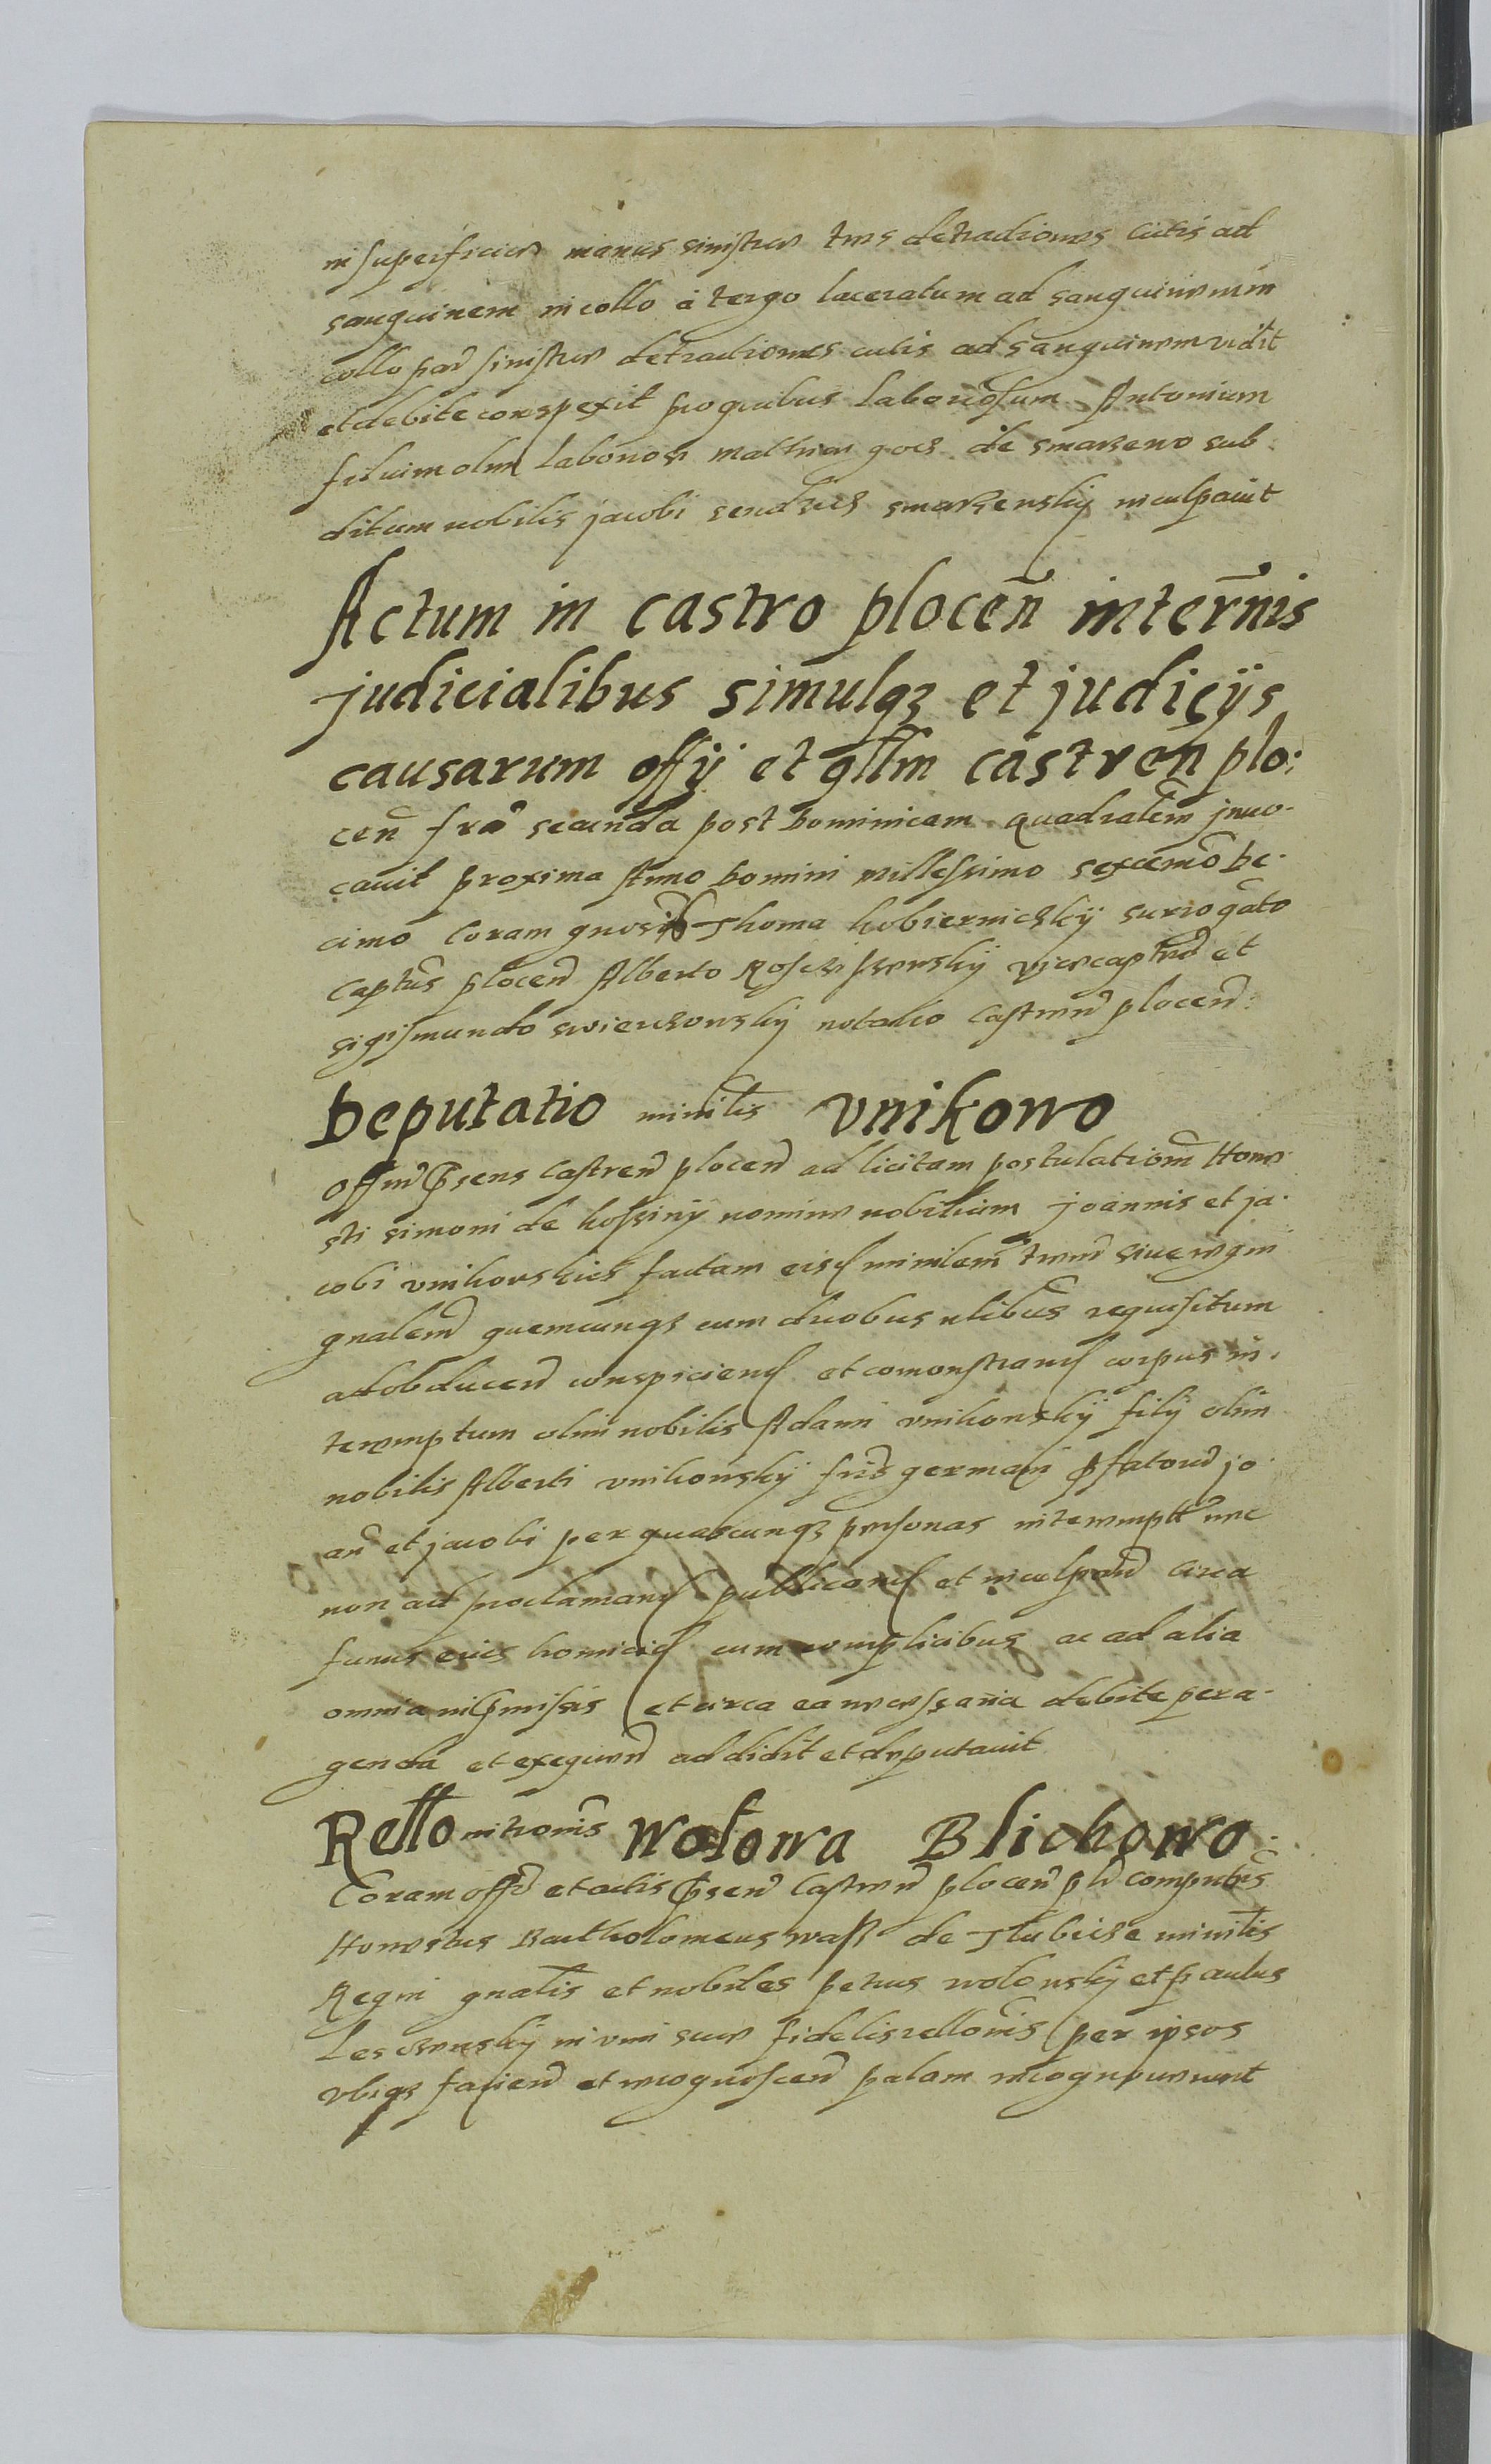 in superficie manus sinistre tres detractiones cutis ad
sanguinem in collo à tergo laceratum ad sanguinem in
collo par̃ sinistre detractiones cutis ad sanguinem vidit
et debite conspexit pro quibus laboriosum Antonium
filium olim laboriosi Mathiae de smarzewo sub
ditum nobilis jacobi smarzensky inculpavit
Actum in castro plocen̄ in ter̄nis
judicialibus simulqz et judicijs
causarum offÿ et gllm castren̄ plo:
cen̄ fr̃a secunda post Dominicam quadralem̃ jnuo-
cavit proxima Anno Domini Millessimo sexcemõ De-
cimo Coram gnosis Thoma kobiernickÿ surrogato
Captũs plocen̄ Alberto Rosciszewskÿ vicecaptño et
sigismundo swierczonskÿ notario Castren̄ plocen̄:
Deputatio minilis̃ Vnikowo
Offm̄ p̃sens Castren̄ plocen̄ ad licitam postulationem̃ Hone-
sti simoni de kossinÿ nomine nobilium Joannis et ja-
cobi vnikowskich factam eisd minilem̃ terrm̃ siue regni
gnalem̃ quemcunqz cum duobus nlibus̃ requisitum
ad obducend conspiciend et comonstrand corpus in-
teremptum olim nobilis Adami vnikonskÿ filÿ olim
nobilis Alberti vnikonskÿ fris̃ germani p̃fatorũ jo-
an̄ et jacobi per quascunqz personas interemptt̃ nec
non ad proclamand publicand et inculpand̃ circa
funus eius homicid cum complicibus ac ad alia
omnia in p̃missis et circa ea necessaria debite pera-
genda et exequend̃ addidit et deputavit
Rello introm̃is Wołowa Blichowo
Coram offo et actis p̃sen̄ Castren̄ plocen̄ plr̃ comparẽs
Honestus Bartholomeus wass de Tłubicze minilis̃
Regni gnalis̃ et nobiles petrus wolonskÿ et paulus
in vim sue fidelis rellonis̃ per ipsos
vbiqz faciend̃ et recognoscend̃ palam recognoverunt